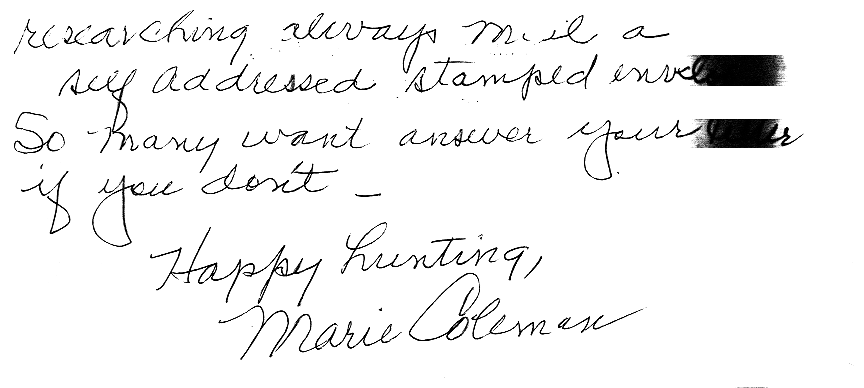 researching always mail a
self addressed stamped
So many want answer your
if you don't –
Happy hunting,
Marie Coleman